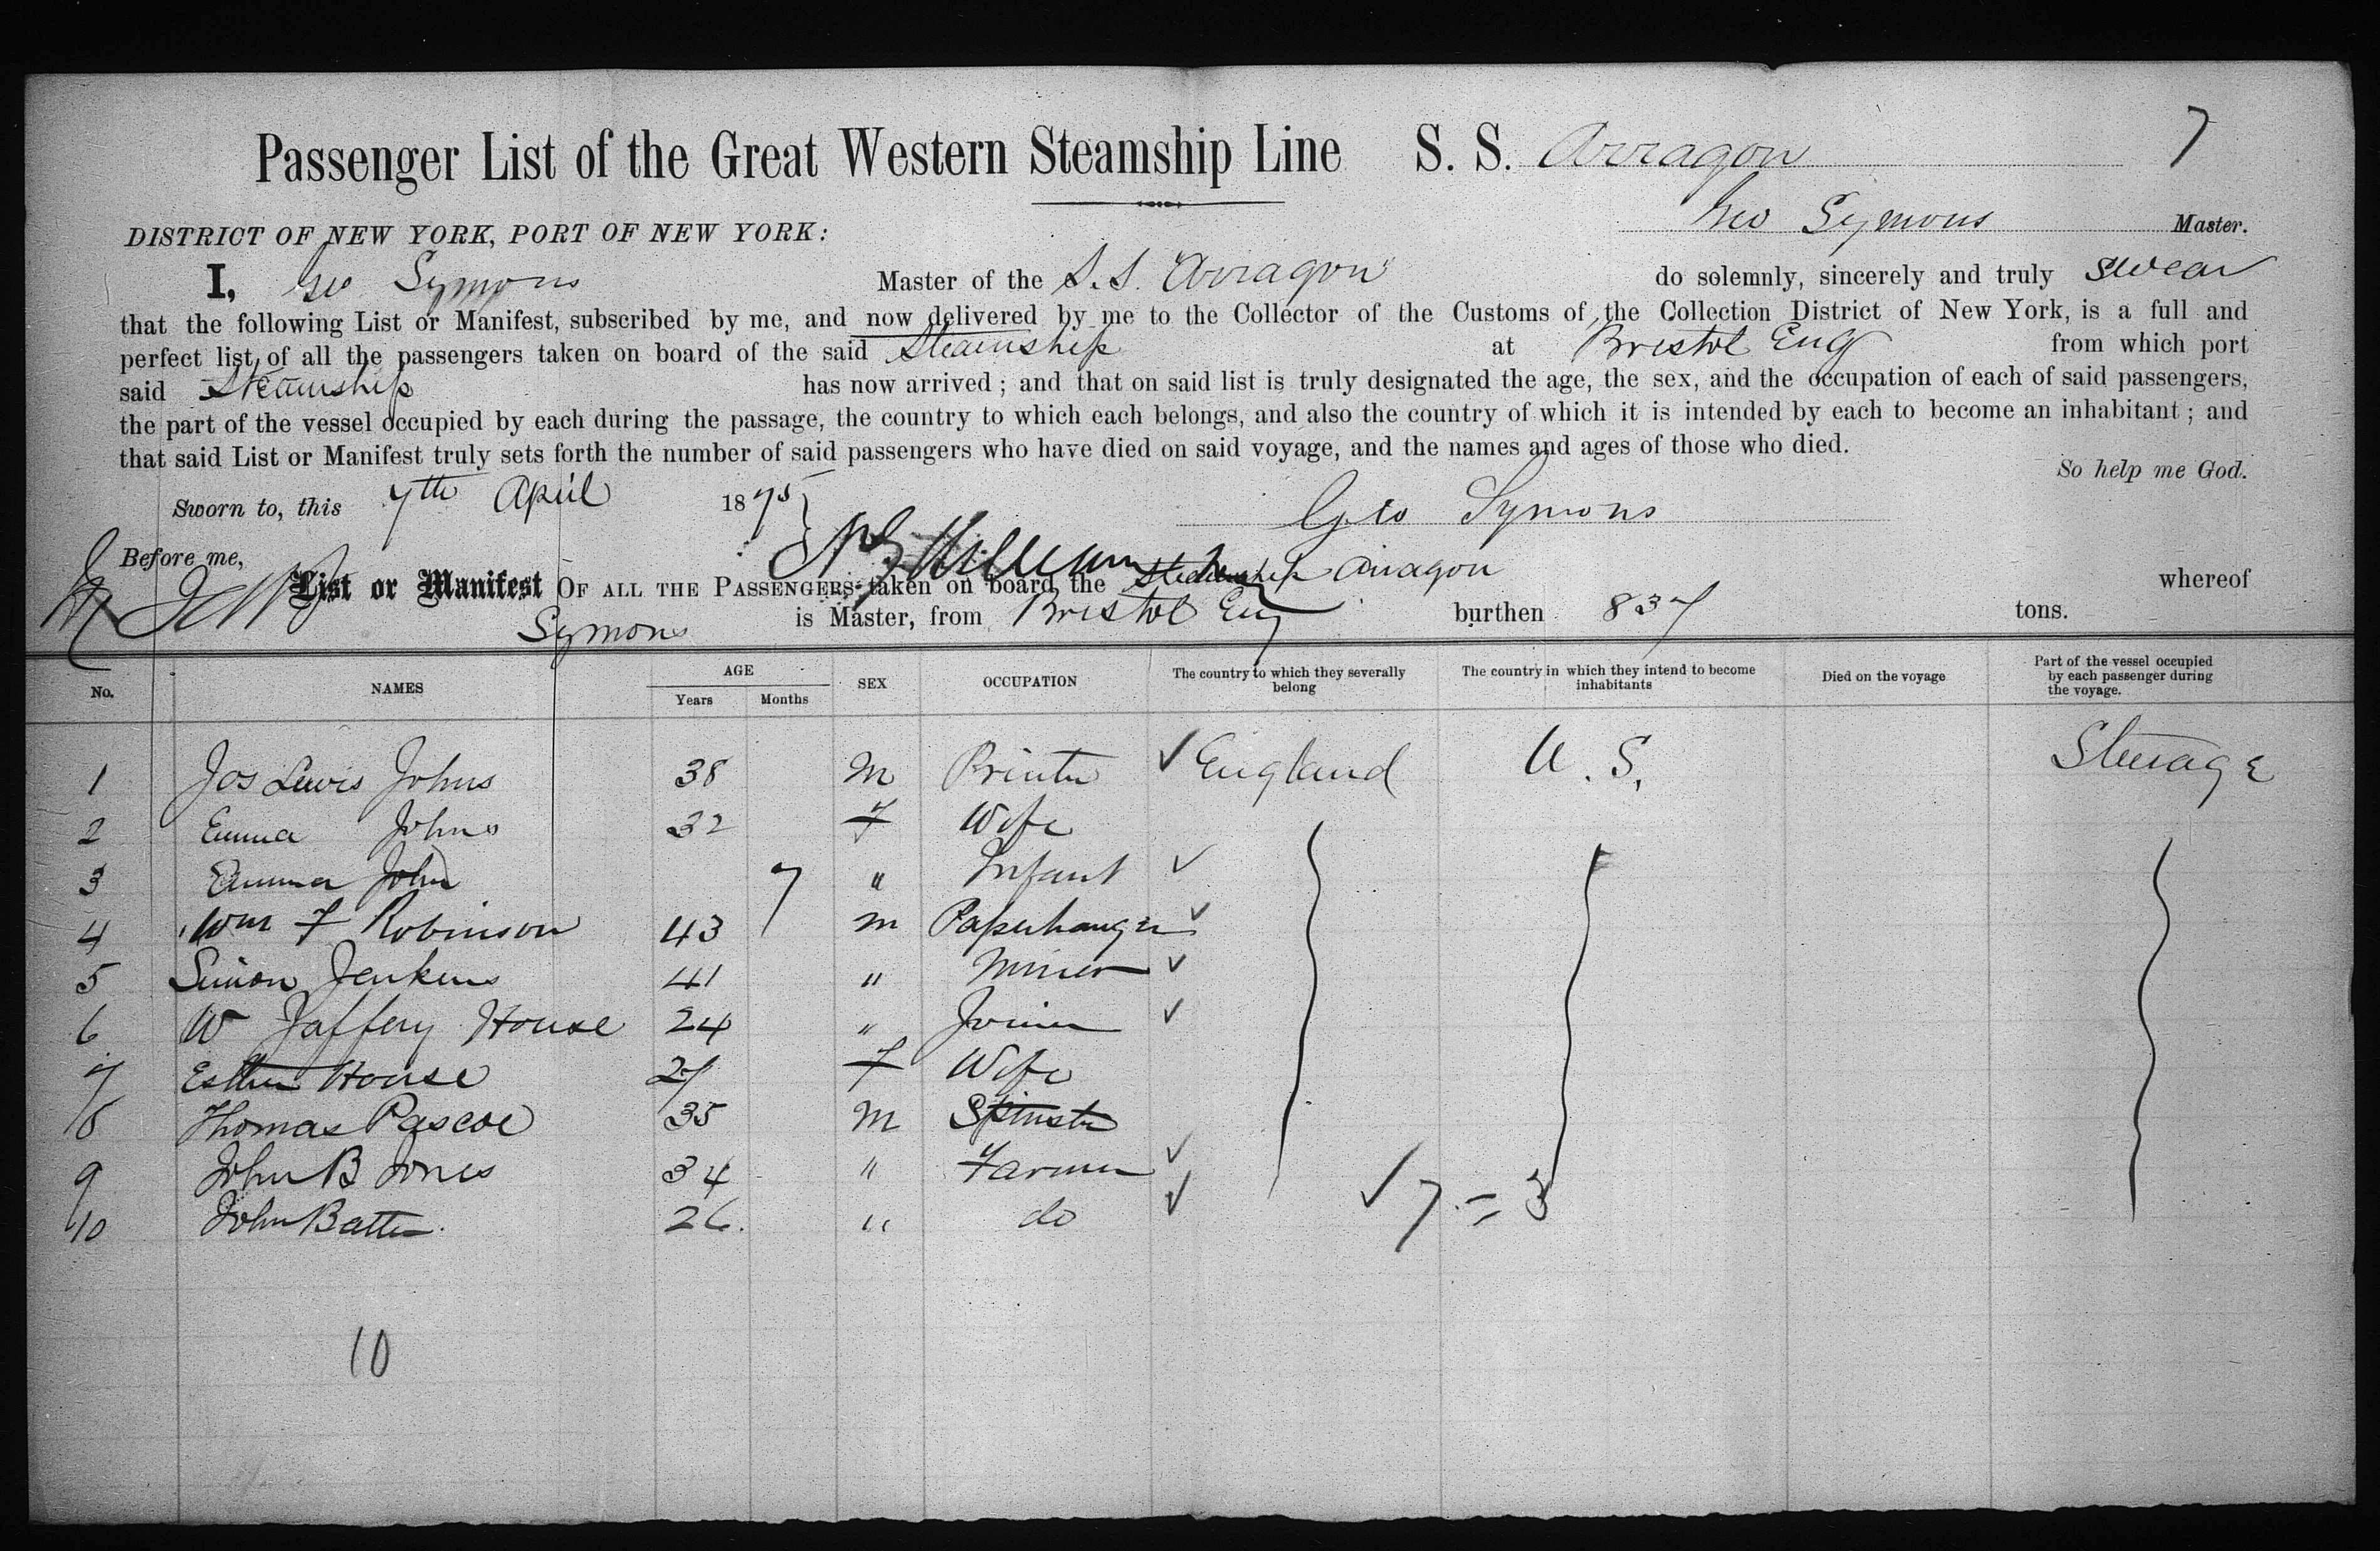 Passenger List of the Great Western Steamship Line S. S. Arragon 7
Geo Symons Master.
DISTRICT OF NEW YORK, PORT OF NEW YORK:
I, Geo Symons Master of the S.S. "Arragon" do solemnly, sincerely and truly swear
that the following List or Manifest, subscribed by me, and now delivered by me to the Collector of the Customs of the Collection District of New York, is a full and
perfect list of all the passengers taken on board of the said Steamship at Bristol Eng from which port
said Steamship has now arrived; and that on said list is truly designated the age, the sex, and the occupation of each of said passengers,
the part of the vessel occupied by each during the passage, the country to which each belongs, and also the country of which it is intended by each to become an inhabitant; and
that said List or Manifest truly sets forth the number of said passengers who have died on said voyage, and the names and ages of those who died.
So help me God.
Sworn to, this 7th April 1875
Geo Symons
Before me,
List or Manifest OF ALL THE PASSENGERS taken on board the Steamship Arragon whereof
Symons is Master, from Bristol Eng burthen 837 tons.
No. NAMES AGE Years Months SEX OCCUPATION The country to which they severally belong The country in which they intend to become inhabitants Died on the voyage Part of the vessel occupied by each passenger during the voyage.
1 Jos Lewis Johns 38 M Printer ✓ England U.S. Steerage
2 Emma Johns 32 F Wife
3 Emma John 7 " Infant ✓
4 Wm F Robinson 43 M Paperhanger ✓
5 Simon Jenkins 41 " Miner ✓
6 W Jaffery House 24 " Joiner ✓
7 Esther House 27 F Wife
8 Thomas Pascoe 35 M Spinster
9 John B Jones 34 " Farmer ✓
10 John Batten 26. " do ✓
✓ 7 = 3
10